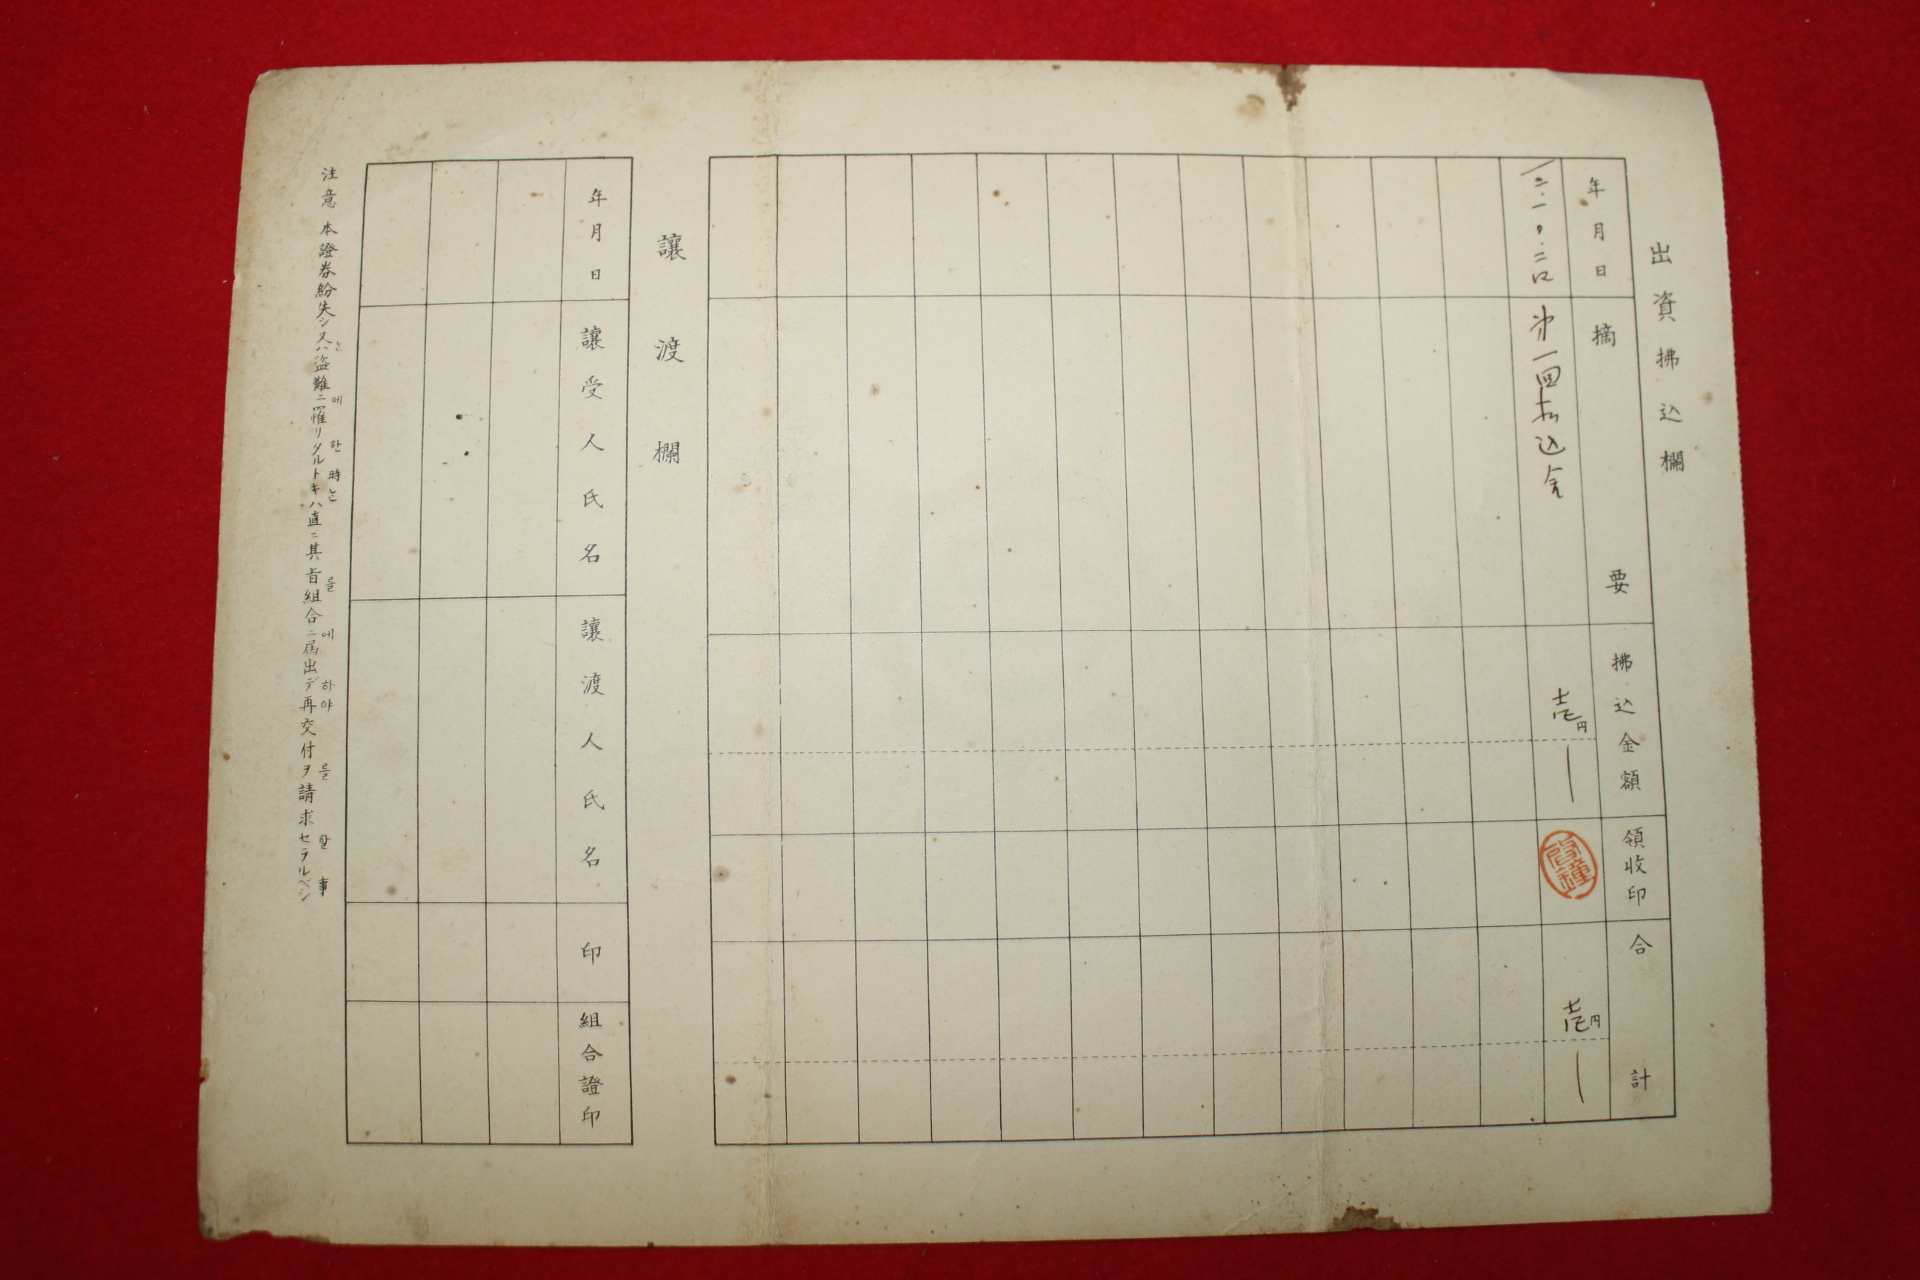 出資拂込欄
年月日
摘要
拂込金額
領收印
合計
第一回拂込金
壱円
壱円
讓渡欄
年月日
讓受人氏名
讓渡人氏名
印
組合證印
는 에 한 時는 을 에 하야 를 할 事
注意 本證券紛失シ又ハ盜難ニ罹リタルトキハ直ニ其旨組合ニ届出デ再交付ヲ請求セラルベシ